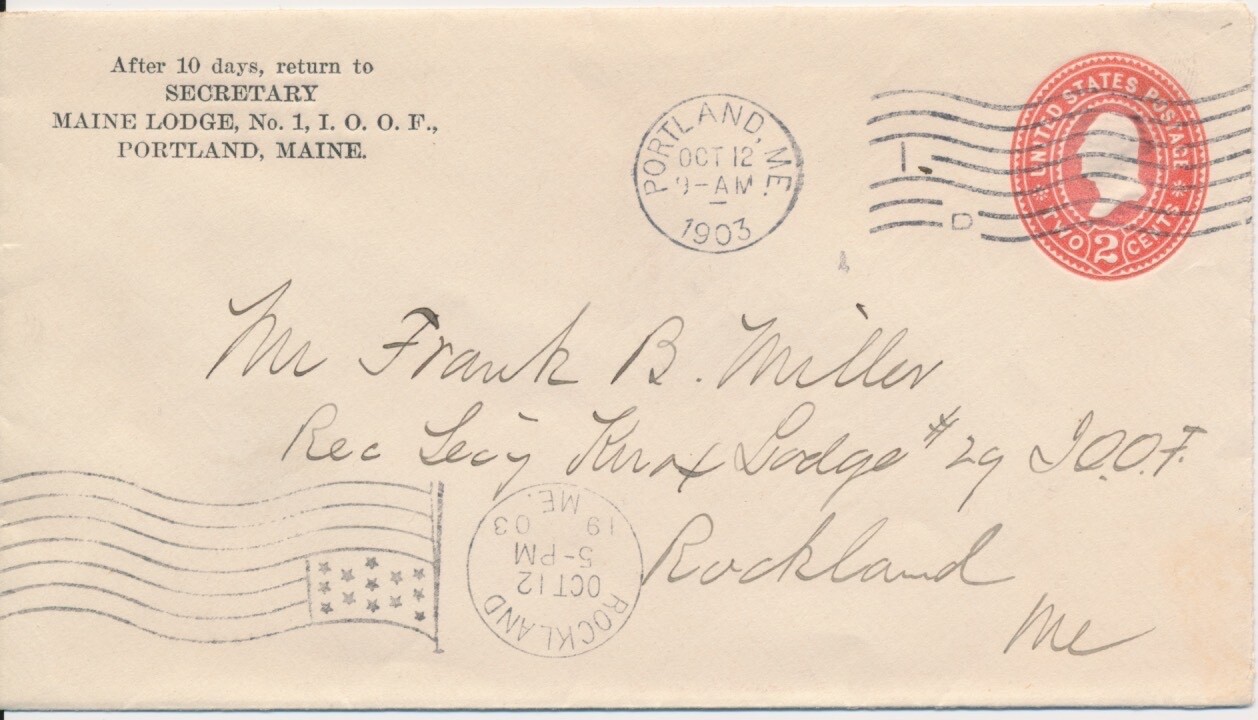 After 10 days, return to
SECRETARY
MAINE LODGE, No. 1, I. O. O. F.,
PORTLAND, MAINE.
PORTLAND, ME.
OCT 12
9-AM
1903
1
D
UNITED STATES POSTAGE
TWO 2 CENTS
Mr Frank B. Miller
Rec Secy Knox Lodge # 29 I.O.O.F.
Rockland
Me
ROCKLAND
OCT 12
5-PM
19 03
ME.